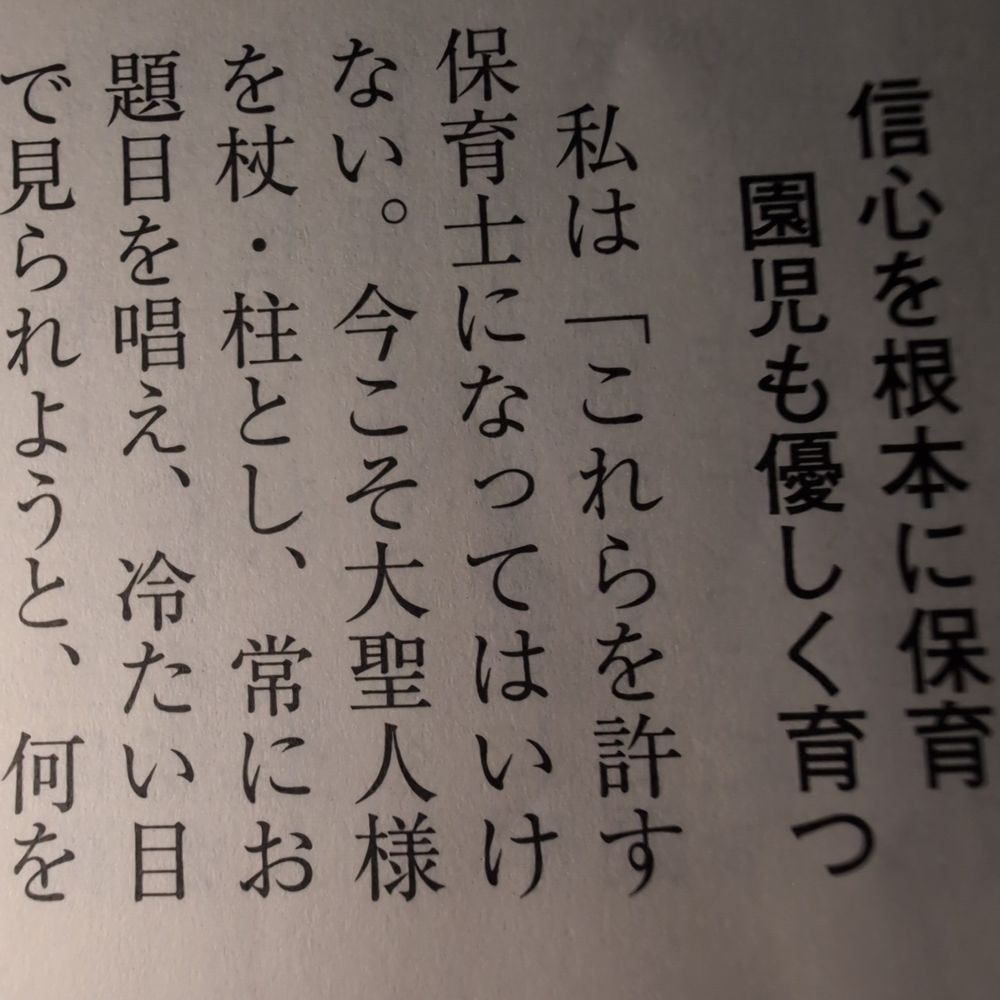 信心を根本に保育
園児も優しく育つ
私は「これらを許す
保育士になってはいけ
ない。今こそ大聖人様
を杖・柱とし、常にお
題目を唱え、冷たい目
で見られようと、何を